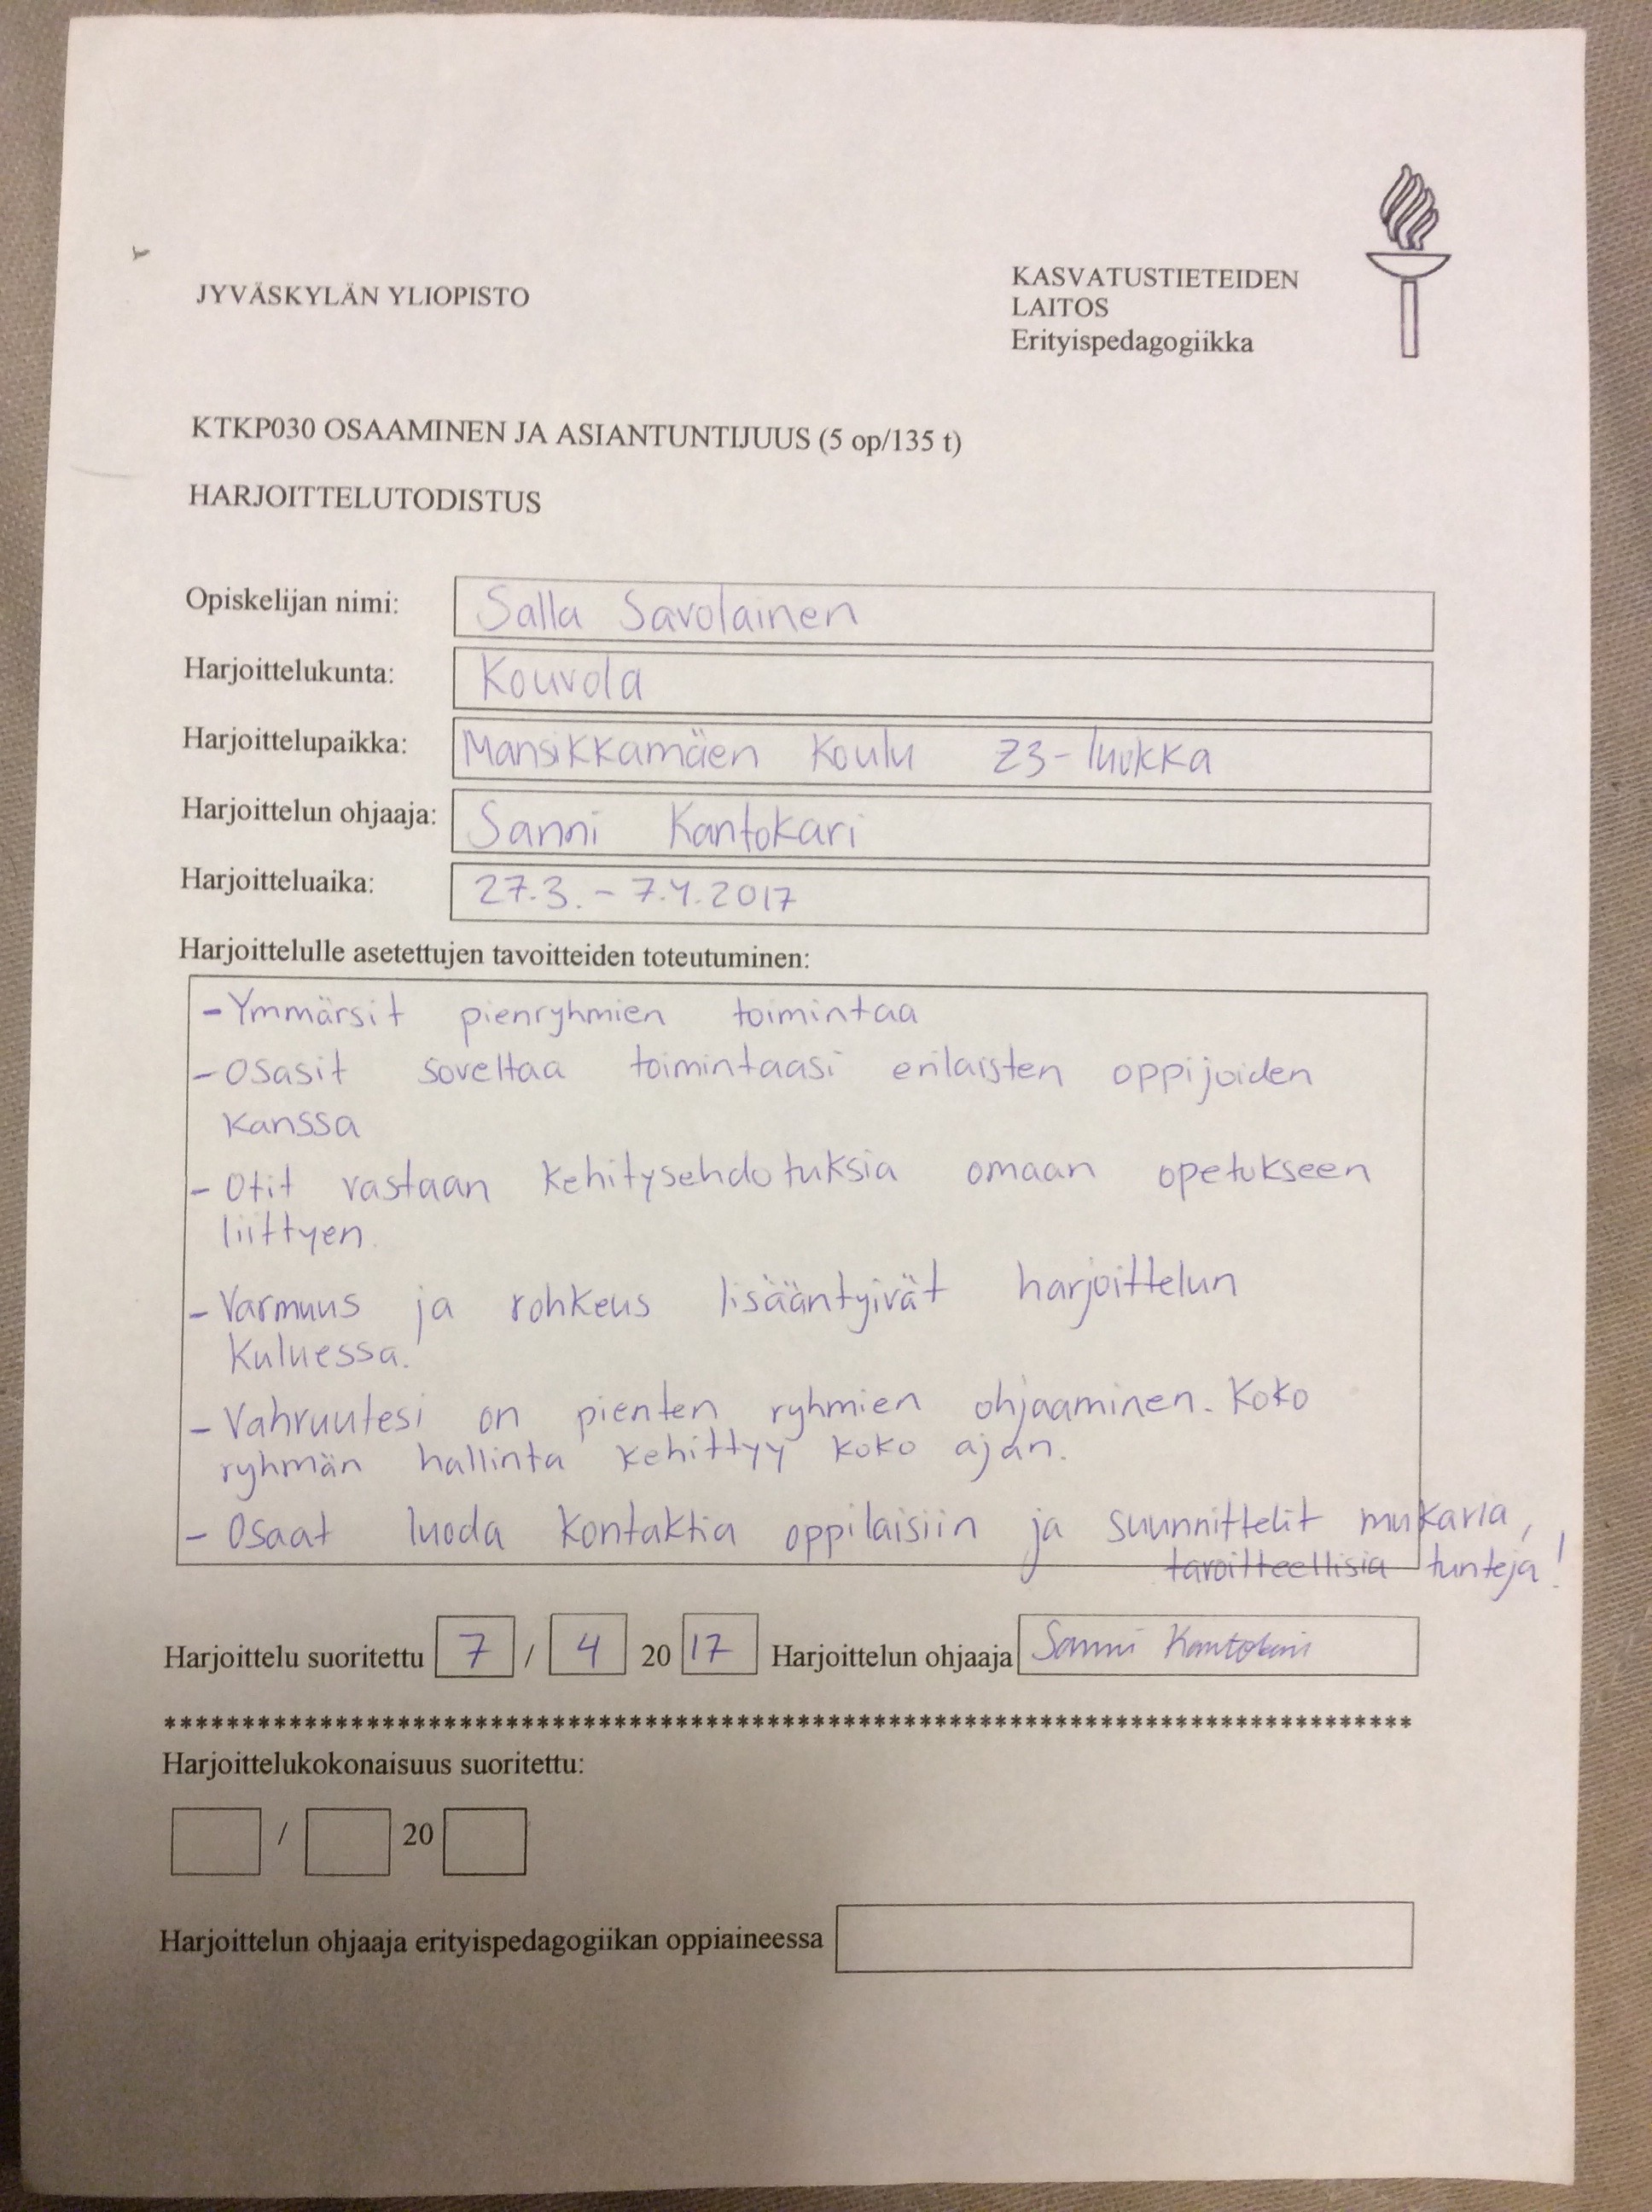 JYVÄSKYLÄN YLIOPISTO
KASVATUSTIETEIDEN
LAITOS
Erityispedagogiikka
KTKP030 OSAAMINEN JA ASIANTUNTIJUUS (5 op/135 t)
HARJOITTELUTODISTUS
Opiskelijan nimi: Salla Savolainen
Harjoittelukunta: Kouvola
Harjoittelupaikka: Mansikkamäen Koulu Z3-luokka
Harjoittelun ohjaaja: Sanni Kantokari
Harjoitteluaika: 27.3. - 7.4.2017
Harjoittelulle asetettujen tavoitteiden toteutuminen:
- Ymmärsit pienryhmien toimintaa
- Osasit soveltaa toimintaasi erilaisten oppijoiden
kanssa
- Otit vastaan kehitysehdotuksia omaan opetukseen
liittyen.
- Varmuus ja rohkeus lisääntyivät harjoittelun
kuluessa.
- Vahvuutesi on pienten ryhmien ohjaaminen. Koko
ryhmän hallinta kehittyy koko ajan.
- Osaat luoda kontaktia oppilaisiin ja suunnittelit mukavia,
tavoitteellisia tunteja!
Harjoittelu suoritettu 7 / 4 20 17 Harjoittelun ohjaaja Sanni Kantokari
********************************************************************************
Harjoittelukokonaisuus suoritettu:
/ 20
Harjoittelun ohjaaja erityispedagogiikan oppiaineessa